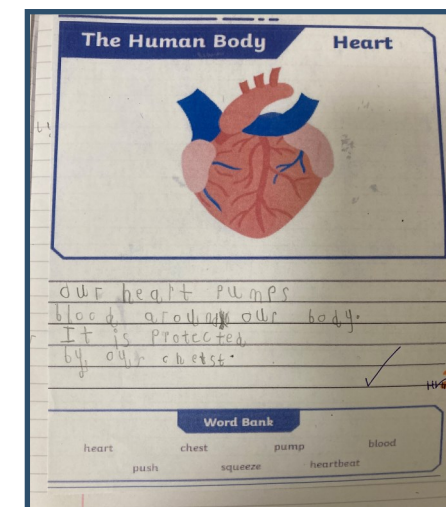 The Human Body Heart
our heart pumps
blood around our body.
It is protected
by our cheist.
Word Bank
heart chest pump blood
push squeeze heartbeat